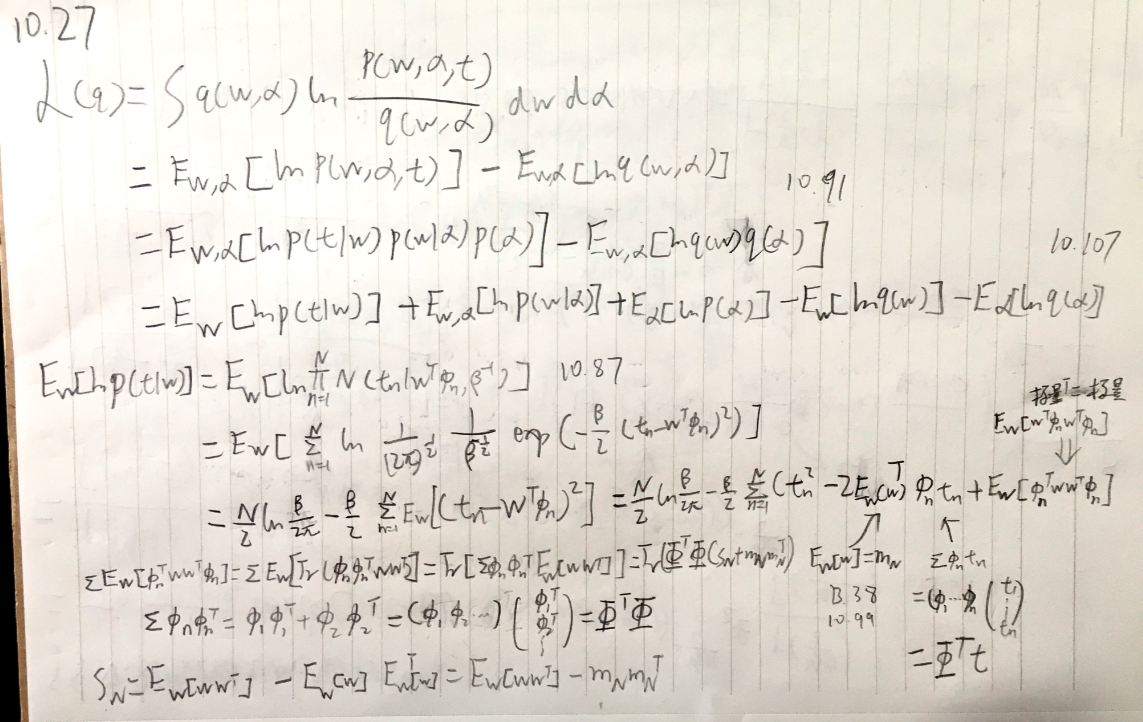 10.27
L(q) = ∫ q(w,α) ln p(w,α,t) / q(w,α) dw dα
= E_{w,α}[ln p(w,α,t)] − E_{w,α}[ln q(w,α)] 10.91
= E_{w,α}[ln p(t|w) p(w|α) p(α)] − E_{w,α}[ln q(w) q(α)] 10.107
= E_w[ln p(t|w)] + E_{w,α}[ln p(w|α)] + E_α[ln p(α)] − E_w[ln q(w)] − E_α[ln q(α)]
E_w[ln p(t|w)] = E_w[ln ∏_{n=1}^N N(t_n|w^Tφ_n, β^{-1})] 10.87
标量^T = 标量
E_w[w^Tφ_n w^Tφ_n]
⇓
= E_w[ Σ_{n=1}^N ln 1/(2π)^{1/2} 1/β^{-1/2} exp(−β/2 (t_n − w^Tφ_n)^2) ]
= N/2 ln β/2π − β/2 Σ_{n=1}^N E_w[(t_n − w^Tφ_n)^2] = N/2 ln β/2π − β/2 Σ_{n=1}^N (t_n^2 − 2E_w[w]^T φ_n t_n + E_w[φ_n^T w w^T φ_n]
ΣE_w[φ_n^T w w^T φ_n] = ΣE_w[Tr(φ_nφ_n^T w w^T)] = Tr[Σφ_nφ_n^T E_w[w w^T]] = Tr(Φ^TΦ(S_N + m_N m_N^T)) E_w[w] = m_N Σφ_n t_n
B.38
10.99
= (φ_1 ⋯ φ_n)(t_1 ⋮ t_n)
= Φ^T t
Σφ_nφ_n^T = φ_1φ_1^T + φ_2φ_2^T = (φ_1 φ_2 ⋯)(φ_1^T φ_2^T ⋮) = Φ^TΦ
S_N = E_w[w w^T] − E_w[w] E_w^T[w] = E_w[w w^T] − m_N m_N^T